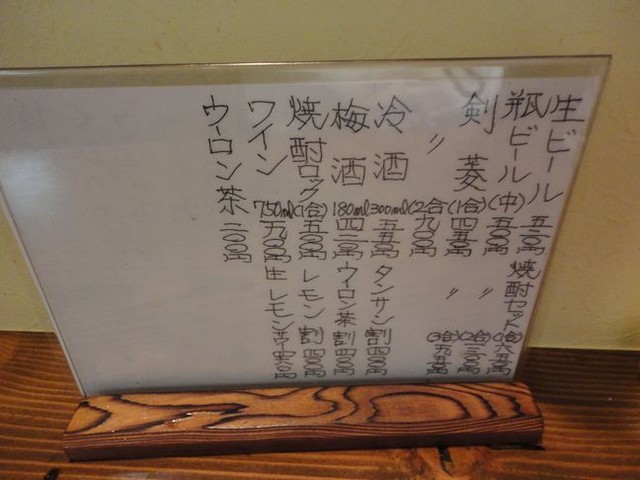 生ビール 五二〇円
瓶ビール(中) 五〇〇円
剣菱(1合) 四五〇円
〃(2合) 九〇〇円
冷酒 300ml 五五〇円
梅酒 180ml 四二〇円
焼酎ロック(1合) 五〇〇円
ワイン 750ml 九〇〇円
ウーロン茶 二〇〇円
焼酎セット(1合) 六五〇円
〃(2合) 一三〇〇円
〃(3合) 一九五〇円
タンサン割 四〇〇円
ウイロン茶割 四〇〇円
レモン割 四〇〇円
生レモンサワー